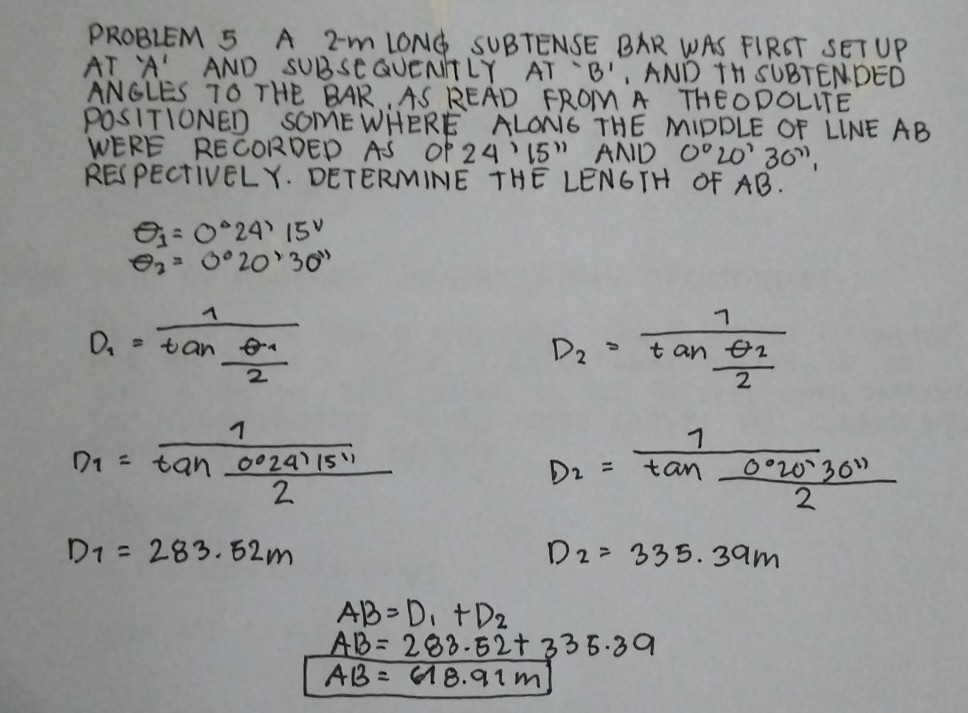 PROBLEM 5 A 2-m LONG SUBTENSE BAR WAS FIRST SET UP
AT 'A' AND SUBSEQUENTLY AT 'B', AND TH SUBTENDED
ANGLES TO THE BAR, AS READ FROM A THEODOLITE
POSITIONED SOMEWHERE ALONG THE MIDDLE OF LINE AB
WERE RECORDED AS 0° 24' 15" AND 0° 20' 30",
RESPECTIVELY. DETERMINE THE LENGTH OF AB.
θ1 = 0° 24' 15"
θ2 = 0° 20' 30"
D1 = 1 / tan θ1/2
D2 = 1 / tan θ2/2
D1 = 1 / tan 0° 24' 15"/2
D2 = 1 / tan 0° 20' 30"/2
D1 = 283.52m
D2 = 335.39m
AB = D1 + D2
AB = 283.52 + 335.39
AB = 618.91 m